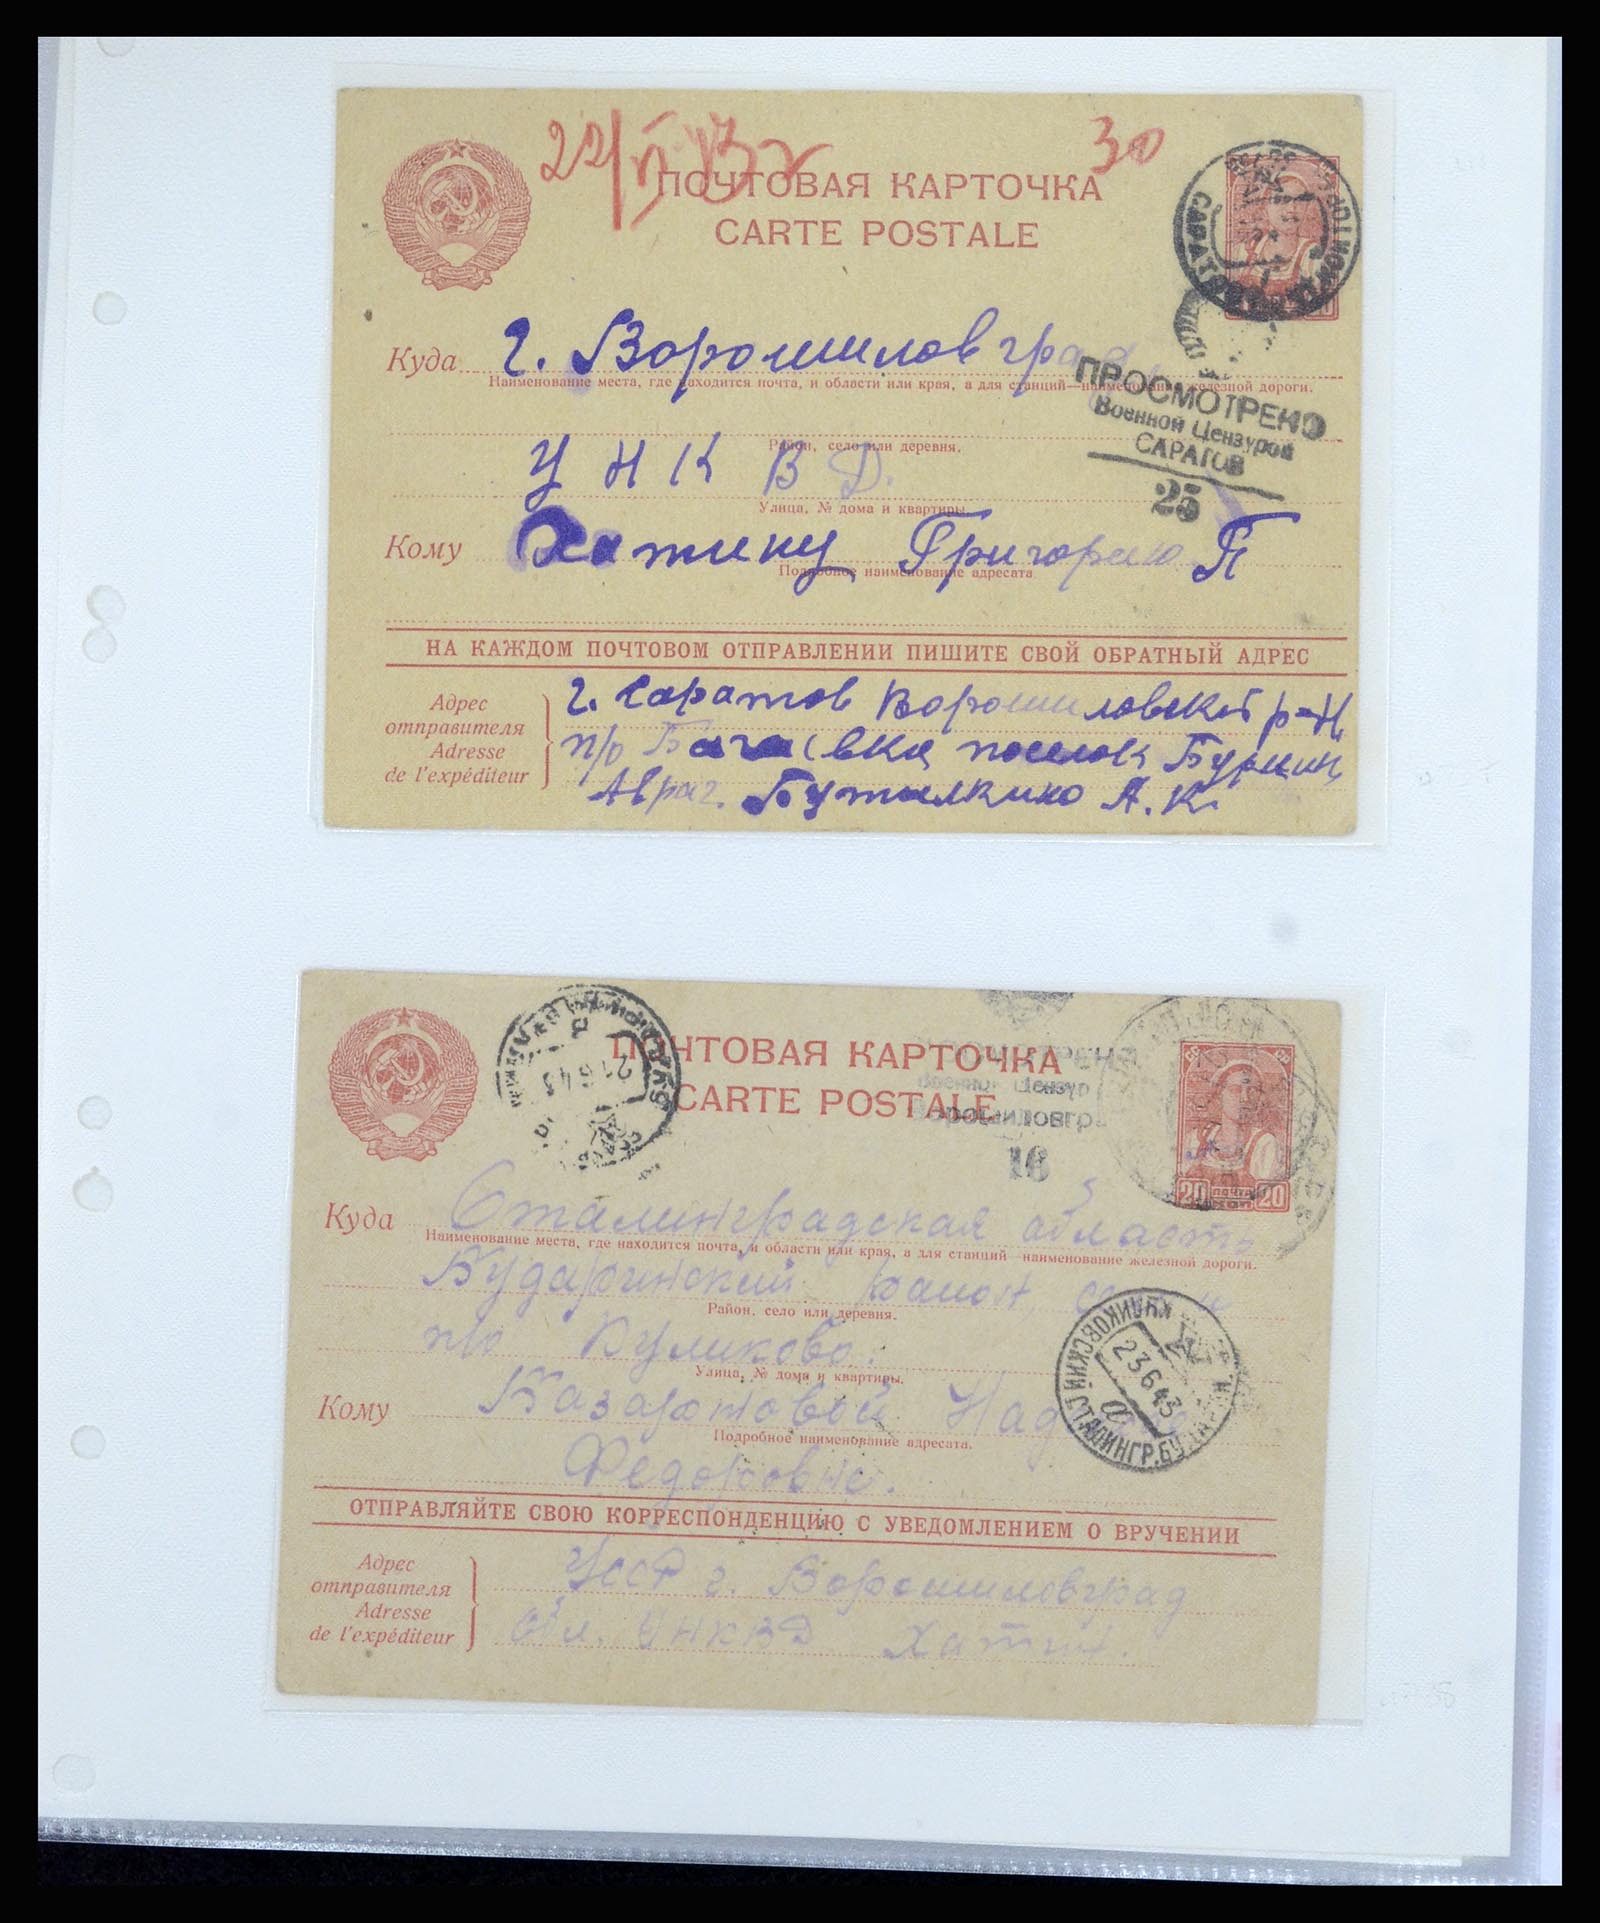 22/VI 43г
30
ПОЧТОВАЯ КАРТОЧКА
CARTE POSTALE
САРАТОВ
Куда г. Ворошиловград
Наименование места, где находится почта, и области или края, а для станций—наименование железной дороги.
ПРОСМОТРЕНО
Военной Цензурой
САРАТОВ
25
Район, село или деревня.
У Н К В Д.
Улица, № дома и квартиры.
Кому Хатину Григорию П
Подробное наименование адресата
НА КАЖДОМ ПОЧТОВОМ ОТПРАВЛЕНИИ ПИШИТЕ СВОЙ ОБРАТНЫЙ АДРЕС
Адрес
отправителя
Adresse
de l'expéditeur
г. Саратов Ворошиловский р-н
п/о поселок
Авраг. Бутылкино А. К.
ПОЧТОВАЯ КАРТОЧКА
CARTE POSTALE
21 6 43
Военной Цензур
Ворошиловгр
16
20 ПОЧТА 20
Куда Сталинградская область
Наименование места, где находится почта, и области или края, а для станций—наименование железной дороги.
Бударинский район,
Район, село или деревня.
п/о Куликово.
Улица, № дома и квартиры.
КУЛИКОВСКИЙ СТАЛИНГР. БУДАРИН.
23 6 43
а
Кому Казартовой
Подробное наименование адресата.
Федоровне.
ОТПРАВЛЯЙТЕ СВОЮ КОРРЕСПОНДЕНЦИЮ С УВЕДОМЛЕНИЕМ О ВРУЧЕНИИ
Адрес
отправителя
Adresse
de l'expéditeur
УССР г. Ворошиловград
Обл. УНКВД Хатин.